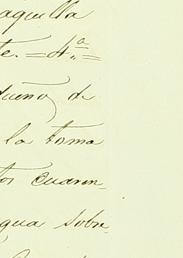 aquella
te.=4.ª=
dueño de
la toma
tos cuaren-
gua sobre